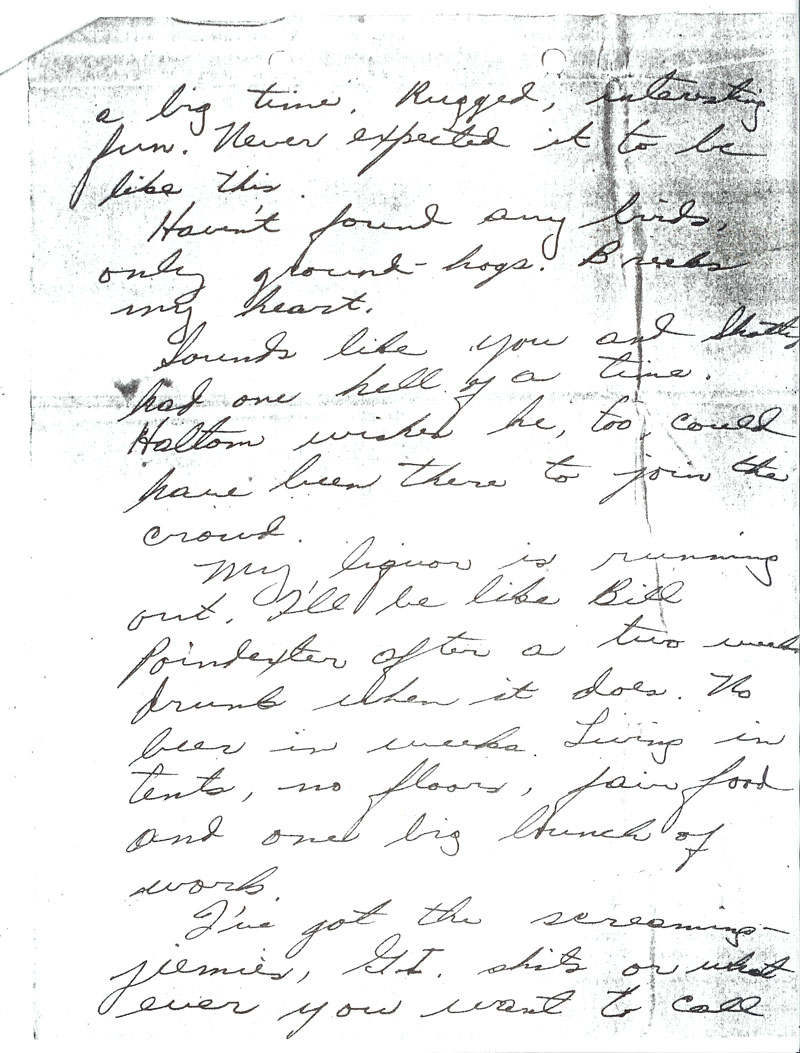 a big time. Rugged, interesting
fun. Never expected it to be
like this.
Haven't found any birds,
only ground-hogs. Breaks
my heart.
Sounds like you and
had one hell of a time.
Haltom wishes he, too, could
have been there to join the
crowd.
My liquor is running
out. I'll be like Bill
Poindexter after a two weeks
drunk when it does. No
beer in weeks. Living in
tents, no floors, fair food
and one big bunch of
work.
I've got the screaming-
jiemies, G.I. shits or what
ever you want to call